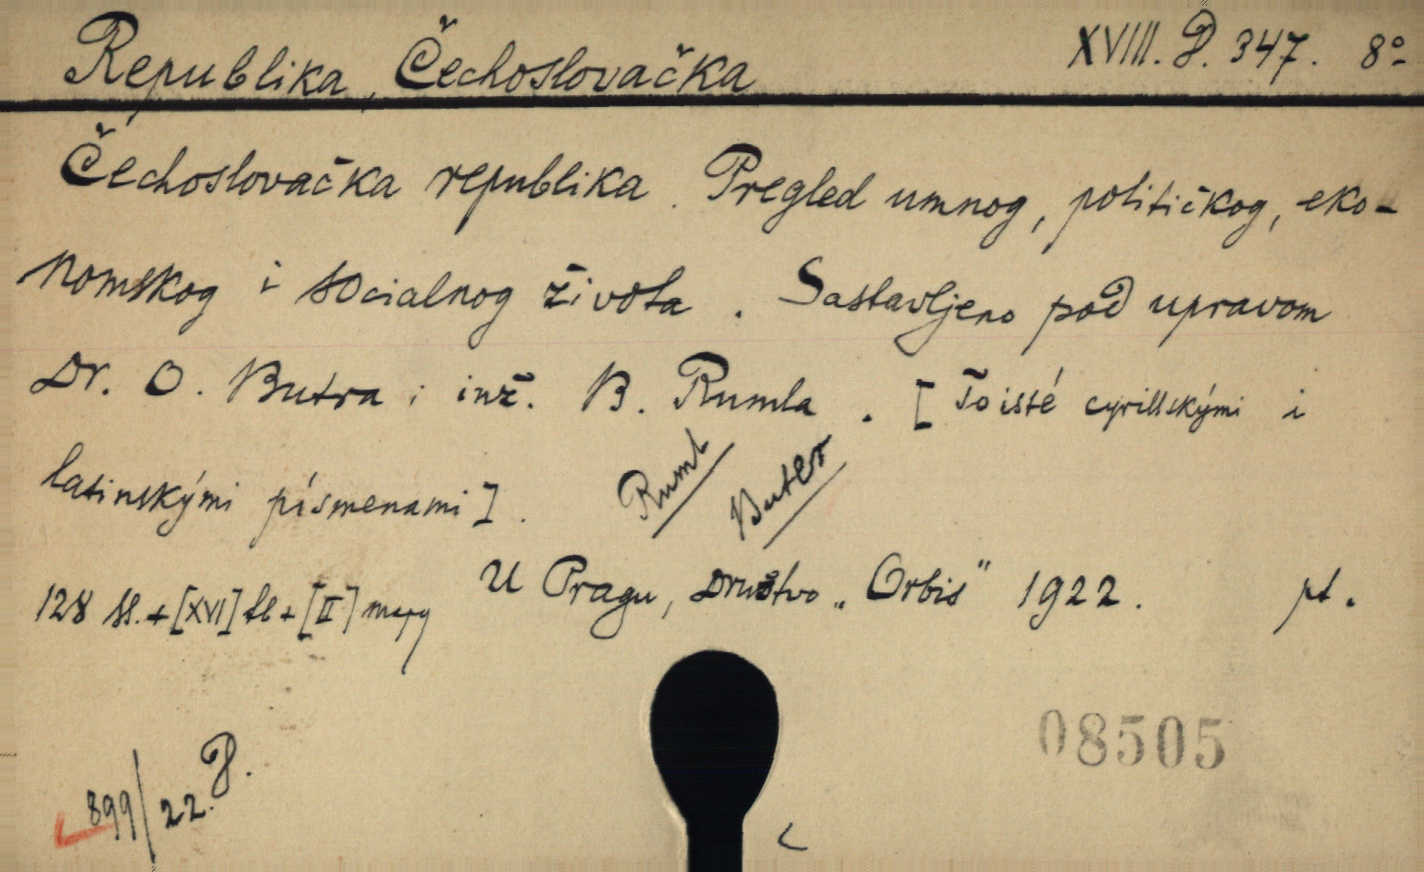 Republika, Čechoslovačka XVIII. D. 347. 8º
Čechoslovačka republika. Pregled umnog, političkog, eko-
nomskog i socialnog života. Sastavljeno pod upravom
Dr. O. Butra i inž. B. Rumla. [Totéž cyrillskými i
latinskými písmenami].
Ruml
Buter
128 ss. + [XVI] tb + [II] mapy U Pragu, Društvo „Orbis" 1922. pt.
08505
899/22. D.